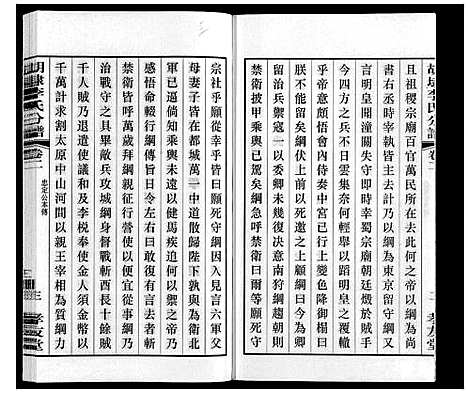 胡埭李氏分譜 卷二
三 孝友堂
且祖稷宗廟百官萬民所在此何之以綱為尚
書右丞東京留守綱又
言明皇聞潼關失守即時幸蜀宗廟朝廷燬於賊手
今四方之兵不日雲集奈何輕舉以蹈明皇之覆轍
乎帝意頗悟會內侍奏中宮已行上變色降御榻曰
朕不能留矣綱伏上前以死邀之上顧綱曰今為卿
留治兵禦寇一以委卿未幾復決意南狩綱趨朝則
禁衛披甲乘輿駕矣綱急呼禁衛曰爾等願死守
宗社乎願從幸乎皆曰願死守綱因入見言六軍父
母妻子皆在都城萬一中道散歸陛下孰與為衛北
軍已逼倘知乘輿未遠以健馬疾追何以禦之帝乃
感悟命輟行綱傳旨日令左右曰敢復有言去者斬
禁衛皆呼萬歲拜綱親征行營使以便宜從事綱乃
治戰守之具畢敵兵攻城綱身督戰斬酋長十餘賊
千人賊乃退遣使議和及李梲奉使金人須金幣以
千萬計求割太原中山河間以親王宰相為質綱力
胡埭李氏分譜 卷二
忠定公本傳
三 孝友堂